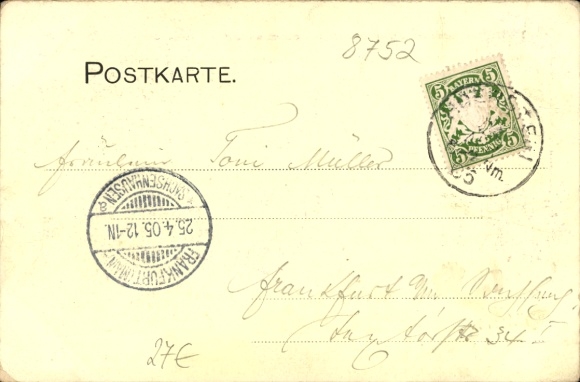 8752
POSTKARTE.
5 BAYERN 5
5 PFENNIG 5
Vm.
Fräulein Toni Müller
FRANKFURT (MAIN)
25.4.05.12-1N.
* SACHSENHAUSEN
Frankfurt
34 I
27€